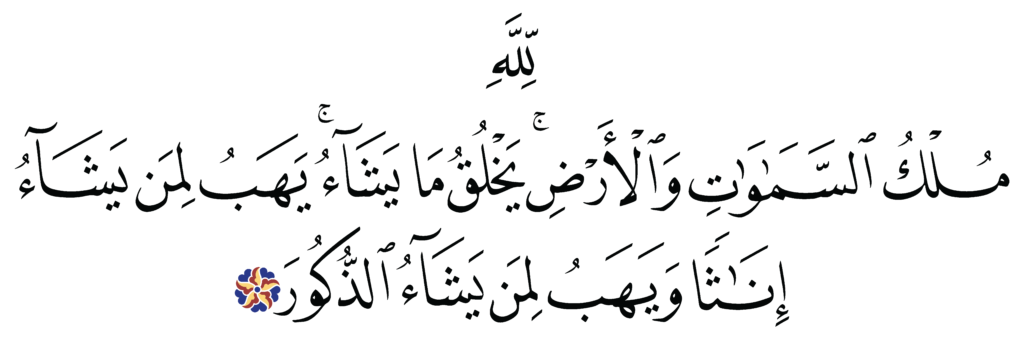 لِّلَّهِ
مُلْكُ ٱلسَّمَٰوَٰتِ وَٱلْأَرْضِ ۚ يَخْلُقُ مَا يَشَآءُ ۚ يَهَبُ لِمَن يَشَآءُ
إِنَٰثًا وَيَهَبُ لِمَن يَشَآءُ ٱلذُّكُورَ